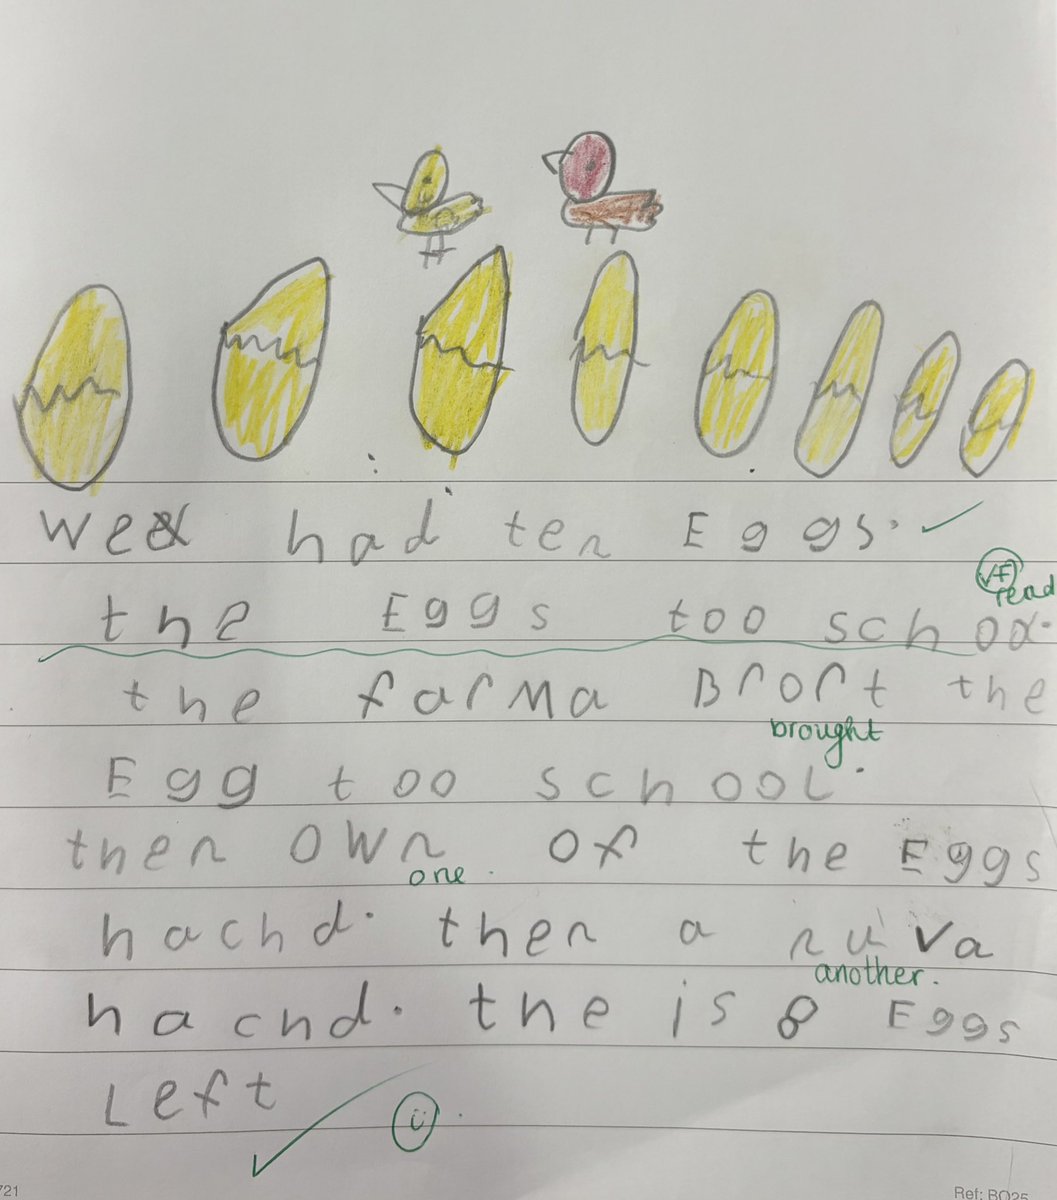 we had ten Eggs.
VF
read
the Eggs too schoo.
the farma Brort the
brought
Egg too schooL.
then own of the Eggs
one.
hachd. then a nuva
another.
hachd. the is 8 Eggs
Left
721
Ref: BO25